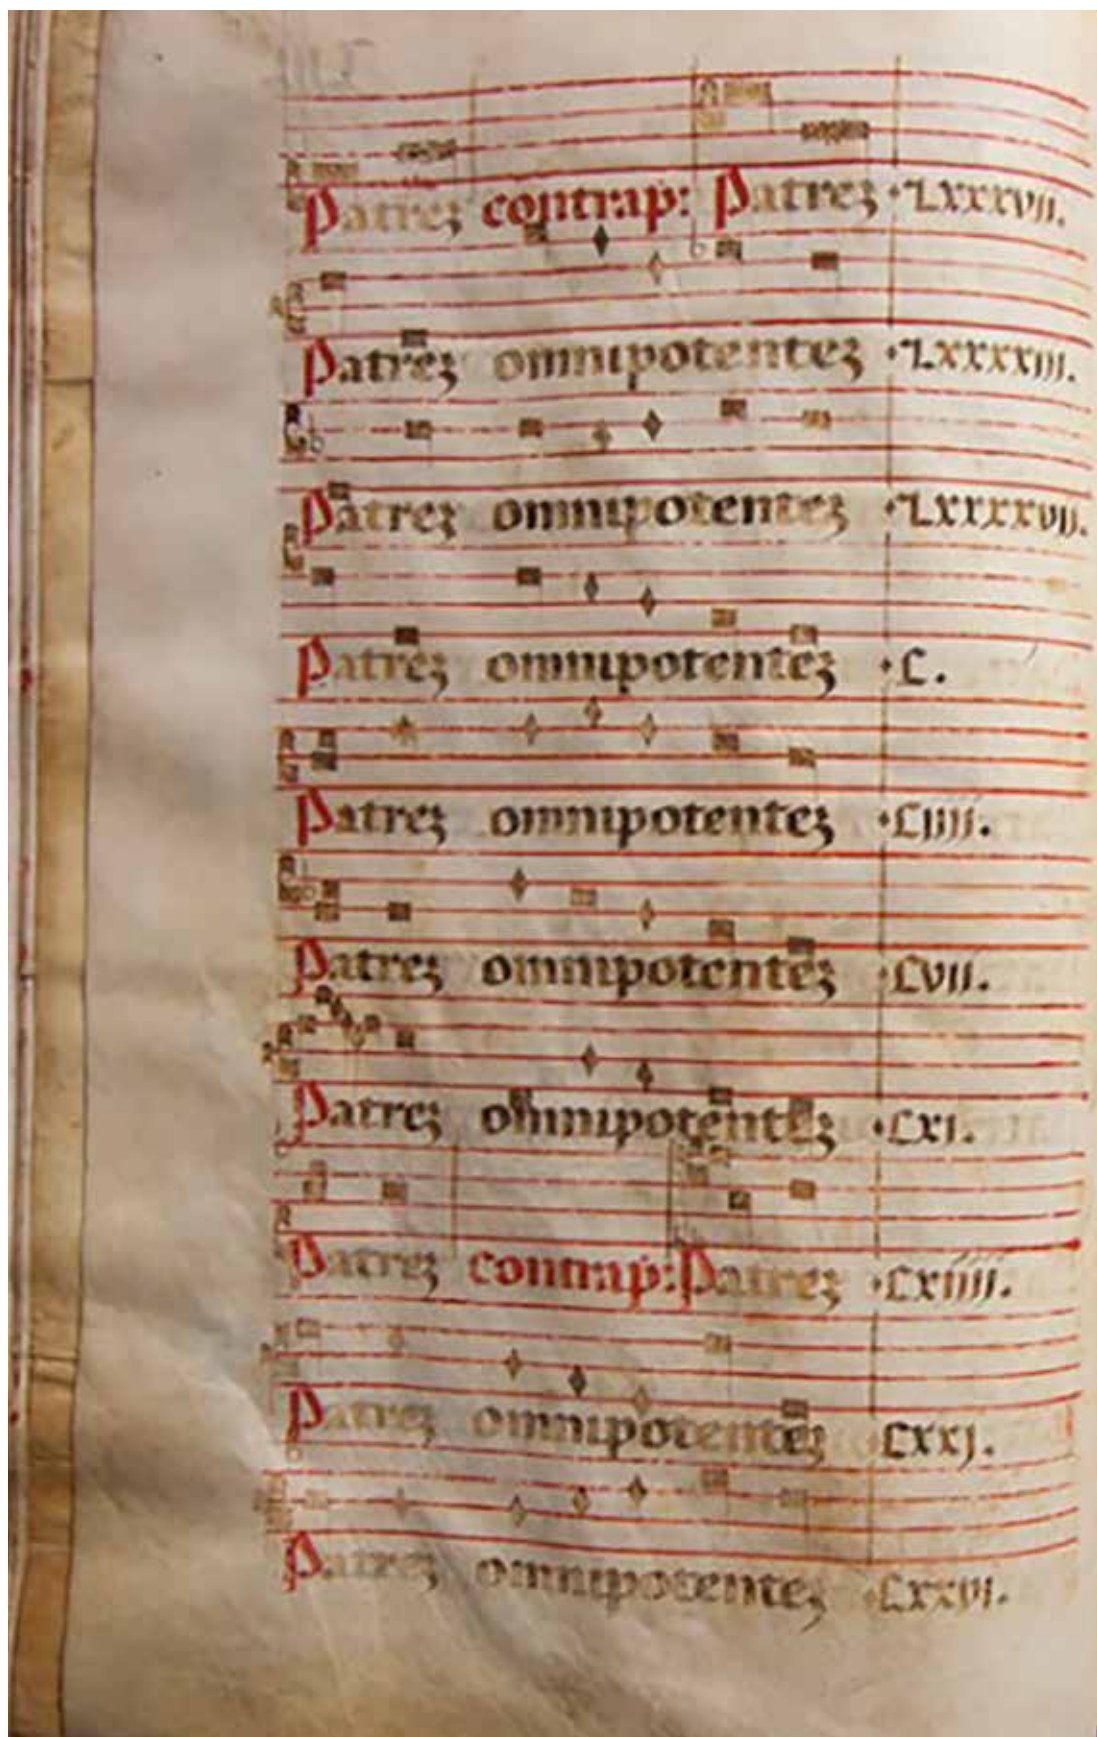 Patrez contrap: Patrez · Lxxxvii.
Patrez omnipotentez · Lxxxxiii.
Patrez omnipotentez · Lxxxxvii.
Patrez omnipotentez · C.
Patrez omnipotentez · Ciiii.
Patrez omnipotentez · Cvii.
Patrez omnipotentez · Cxi.
Patrez contrap: Patrez · Cxiiii.
Patrez omnipotentez Cxxj.
Patrez omnipotentez · Cxxvi.